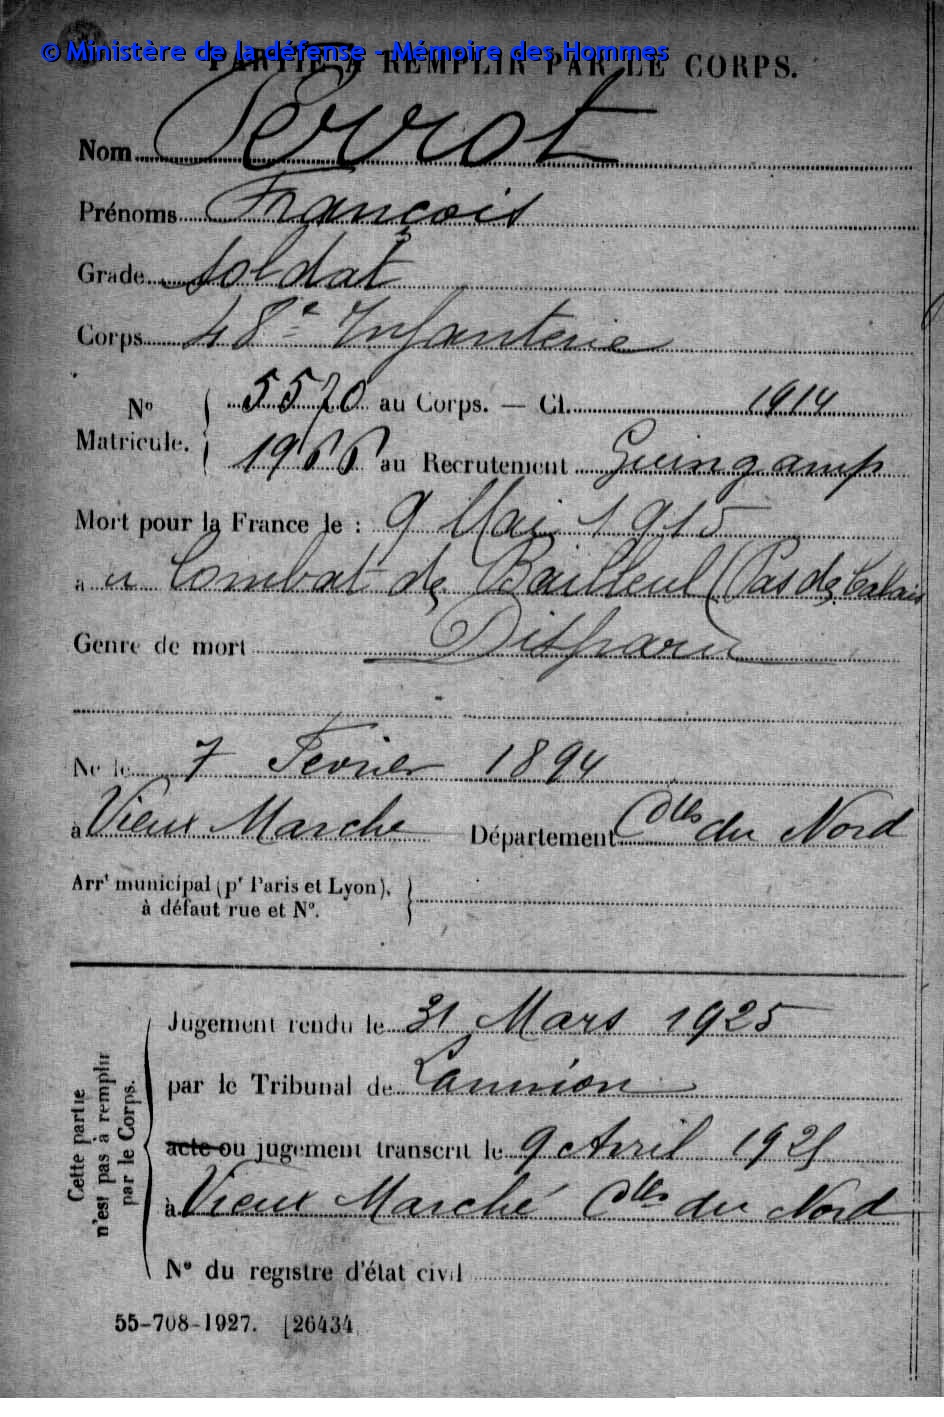 © Ministère de la défense - Mémoire des Hommes
PARTIE À REMPLIR PAR LE CORPS.
Nom Perrot
Prénoms François
Grade soldat
Corps 48e Infanterie
No Matricule. 5570 au Corps. — Cl. 1914
1966 au Recrutement Guingamp
Mort pour la France le : 9 Mai 1915
au Combat de Bailleul (Pas de Calais
Genre de mort Disparu
Né le 7 Fevrier 1894
à Vieux Marche Département Ctes du Nord
Arrt municipal (pr Paris et Lyon),
à défaut rue et No.
Cette partie
n'est pas à remplir
par le Corps.
Jugement rendu le 31 Mars 1925
par le Tribunal de Lannion
acte ou jugement transcrit le 9 Avril 1925
à Vieux Marché Ctes du Nord
No du registre d'état civil
55-708-1927. [26434